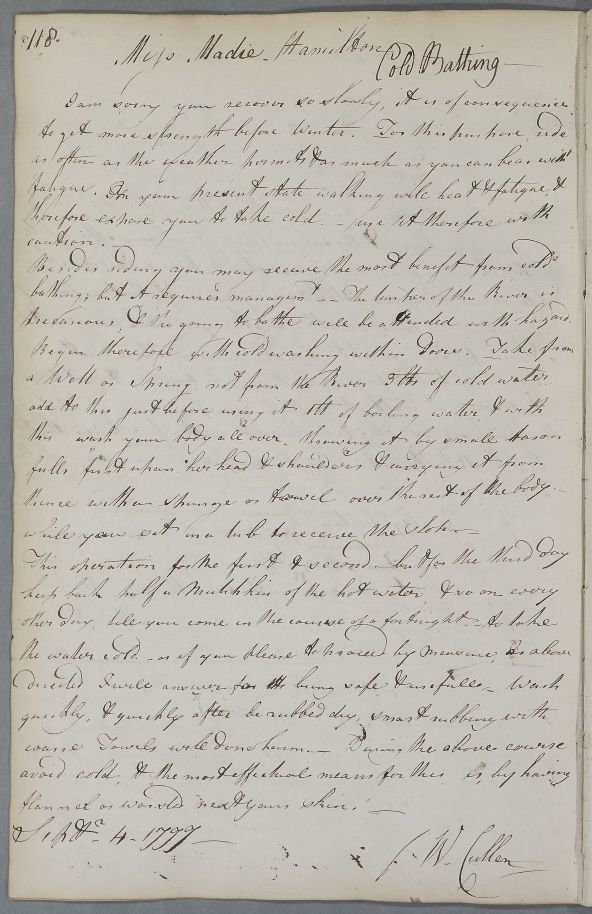 118.
Miss Madie Hamilton
Cold Bathing
I am sorry you recover so slowly, it is of consequence
to get more strength before Winter. For this purpose ride
as often as the weather permits & as much as you can bear witht
fatigue. In your present state walking will heat & fatigue &
therefore expose you to take cold. - use it therefore with
caution. -
Besides riding you may receive the most benefit from cold
bathing; but it requires managemt - The temper of the River is
precarious, & the going to bathe will be attended with hazard.
Begin therefore with cold washing within doors. Take from
a Well or Spring, not from the River lbs of cold water
add to this just before using it 1 lb of boiling water, & with
this wash your body all over. throwing it by small bason
fulls first upon her head & shoulders & carrying it from
thence with a spunge or towel over the rest of the body. -
while you sit in a tub to receive the slop -
This operation for the first & second - but for the third day
keep back half a Mutchkin of the hot water & so on every
other day, till you come in the course of a fortnight - to take
the water cold - or if you please to proceed by measure, As above
directed I will answer for its being safe & usefull - Wash
quickly, & quickly after be rubbed dry, smart rubbing with
coarse Towels will do no harm. - During the above course
avoid cold, & the most effectual means for this is by having
flannel or worsted next your skin. -
Septr. 4 - 1799 -
W. Cullen